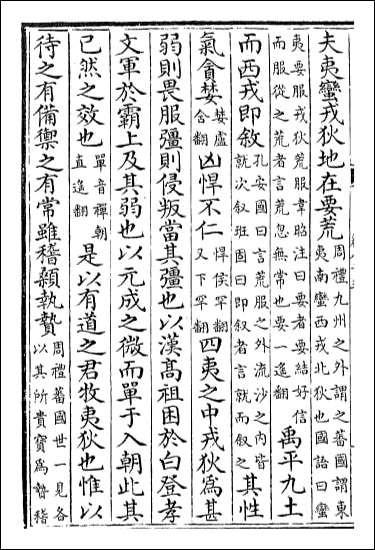 夫夷蠻戎狄地在要荒周禮九州之外謂之蕃國謂東夷南蠻西戎北狄也國語曰蠻
夷要服戎狄荒服韋昭注曰要者要結好信而服從之荒者言荒忽無常也要一遥翻禹平九土
而西戎即叙孔安國曰言荒服之外流沙之内皆就次叙班固曰即叙者言就而叙之其性
氣貪婪婪盧含翻凶悍不仁悍侯罕翻又下罕翻四夷之中戎狄為甚
弱則畏服彊則侵叛當其彊也以漢髙祖困於白登孝
文軍於霸上及其弱也以元成之微而單于入朝此其
已然之效也單音禪朝直遥翻是以有道之君牧夷狄也惟以
待之有備禦之有常雖稽顙執贄周禮蕃國世一見各以其所貴寶為贄稽